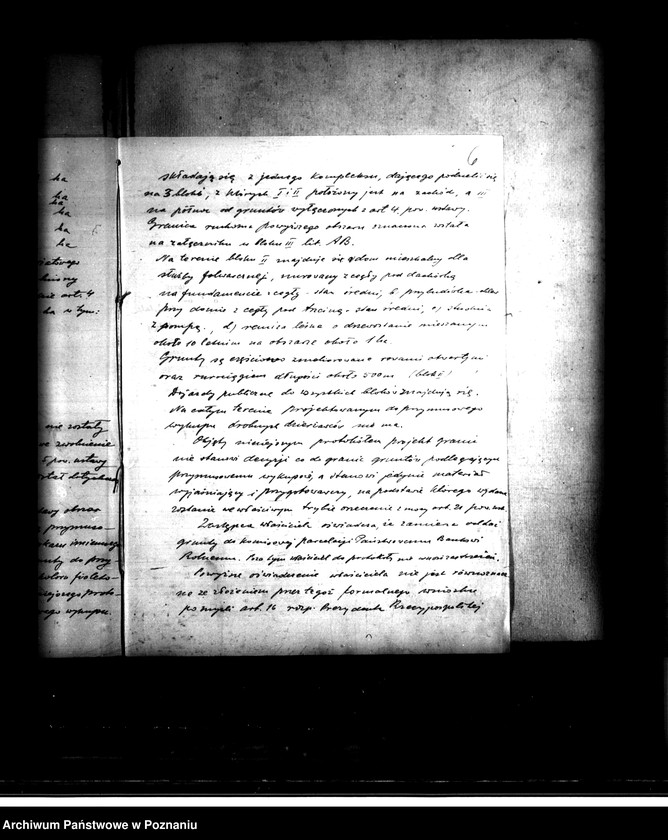 6
składają się z jednego kompleksu, dającego podzielić się
na 3 bloki, z których I i II położony jest na zachód, a III
na północ od gruntów wyłączonych z art. 4. pow. ustawy.
Granica ruchoma powyższego obszaru oznaczona została
na załączniku w bloku III lit. AB.
Na terenie bloku II znajduje się a) dom mieszkalny dla
służby folwarcznej, murowany z cegły pod dachówką
na fundamencie z cegły - stan średni, b) przybudówka
przy domie z cegły pod stan średni, c) studnia
z pompą, d) remiza leśna o drzewostanie mieszanym
około 10 letnim na obszarze około 1 ha.
Grunty są częściowo zmeliorowane rowami otwartymi
oraz rurociągiem długości około 500 m (blok I)
Dojazdy publiczne do wszystkich bloków znajdują się.
Na całym terenie projektowanym do przymusowego
wykupu drobnych dzierżawców nie ma.
Objęty niniejszym protokółem projekt granic
nie stanowi decyzji co do granic gruntów podlegających
przymusowemu wykupowi, a stanowi jedynie materiał
wyjaśniający i przygotowawczy, na podstawie którego wydane
zostanie we właściwym trybie orzeczenie z mocy art. 20 pow. ust.
Zastępca właściciela oświadcza, że zamierza oddać
grunty do komisowej parcelacji Państwowemu Bankowi
Rolnemu. Poza tym właściciel do protokołu nie wnosi zastrzeżeń.
Powyższe oświadczenie właściciela nie jest równoznacz-
ne ze złożeniem przez tegoż formalnego wniosku
po myśli art. 16 rozp. Prezydenta Rzeczypospolitej
ha
ha
ha
ha
ha
ha
art. 4
ha w tym:
nie zostały
zwolnienie
pow. ustawy
obszar
przymuso-
Archiwum Państwowe w Poznaniu